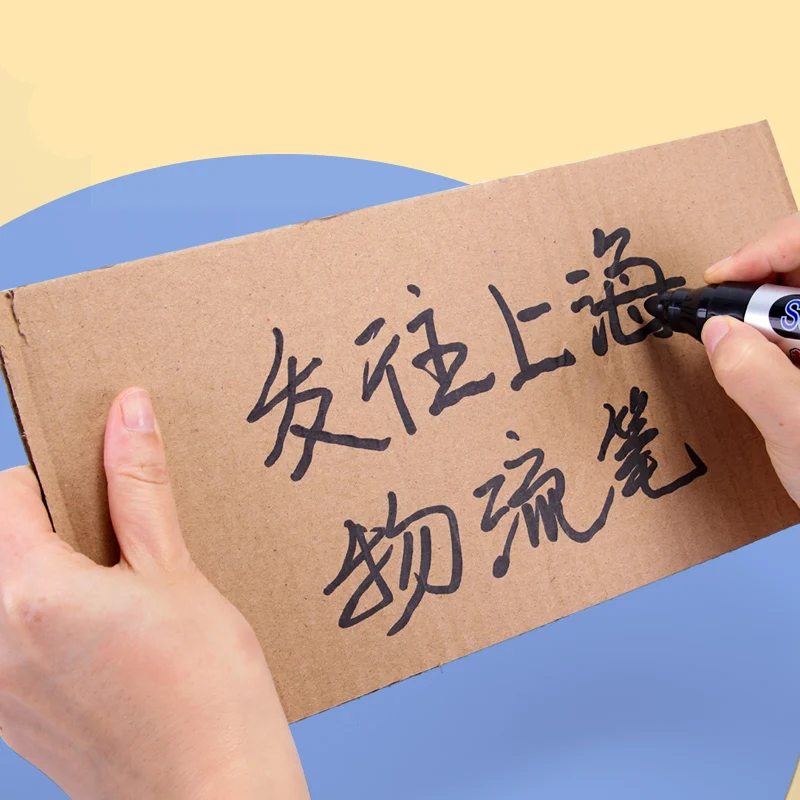 发往上海
物流笔
S